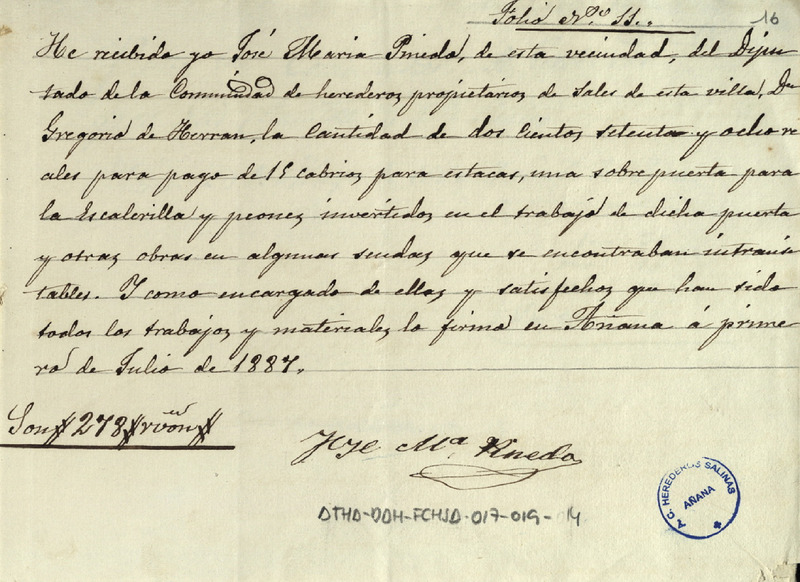 Folio N.º 11.
16
He recibido yo José Maria Pinedo, de esta vecindad, del Dipu
tado de la Comunidad de herederos propietarios de sales de esta villa, Dn
Gregorio de Herran, la Cantidad de dos cientos setenta y ocho re
ales para pago de 15 cabrios para estacas, una sobre puerta para
la Escalerilla y peones invertidos en el trabajo de dicha puerta
y otras obras en algunas sendas que se encontraban intransi
tables. Y como encargado de ellas y satisfechos que han sido
todos los trabajos y materiales lo firmo en Añana á prime
ro de Julio de 1887.
Son 278 rvon
José Mª Pinedo
DTHA-DAH-FCHSA-017-019-014
T.C. HEREDEROS SALINAS
AÑANA